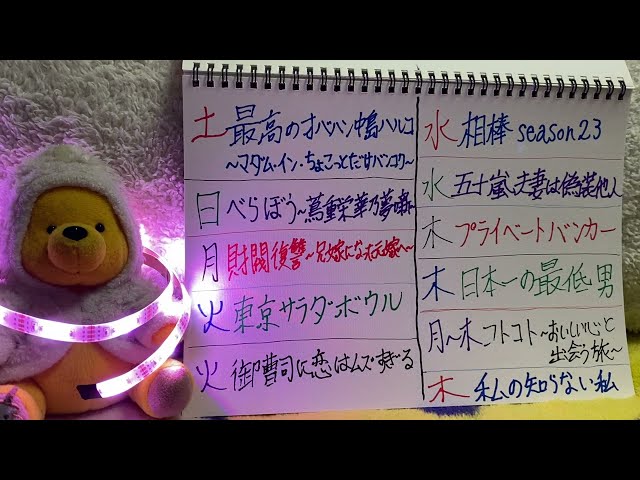 土 最高のオバハン中島ハルコ
～マダム・イン・ちょこっとだけバンコク～
日 べらぼう～蔦重栄華乃夢噺～
月 財閥復讐～兄嫁になった元嫁へ～
火 東京サラダボウル
火 御曹司に恋はムズすぎる
水 相棒 season23
水 五十嵐夫妻は偽装他人
木 プライベートバンカー
木 日本一の最低男
月～木 フトコト～おいしい心と
出会う旅～
木 私の知らない私